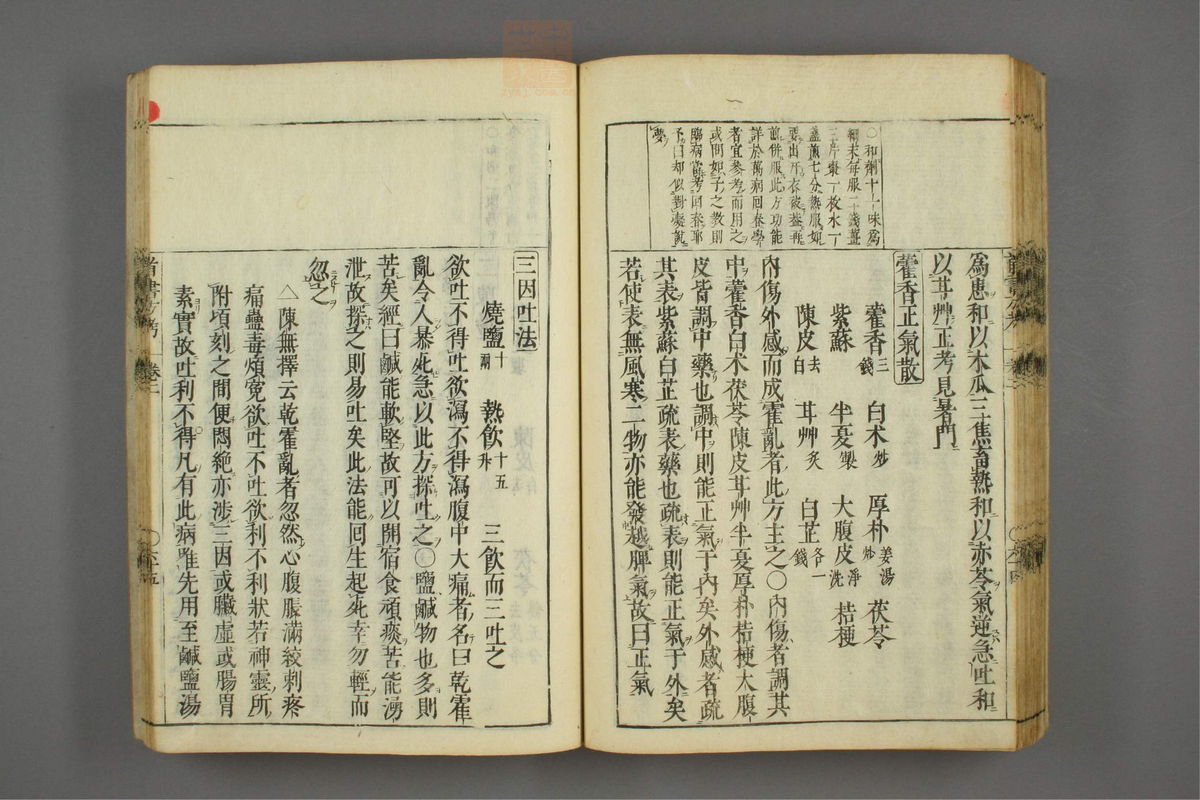 ○和劑十一味爲
細末每服二錢薑
三片棗一枚水一
盞煎七分熱服如
要出汗衣被蓋再
煎併服此方功能
詳於萬病回春學
者宜參考而用之
或問如子之教則
臨病當考回春耶
予曰却似對癡說
夢
爲患和以木瓜三焦畜熱和以赤苓氣逆急吐和
以甘艸正考見暑門
藿香正氣散
藿香三錢 白术炒 厚朴姜湯炒 茯苓
紫蘇 半夏製 大腹皮淨洗 桔梗
陳皮去白 甘艸炙 白芷各一錢
內傷外感而成霍亂者此方主之○內傷者調其
中藿香白术茯苓陳皮甘艸半夏厚朴桔梗大腹
皮皆調中藥也調中則能正氣于內矣外感者疏
其表紫蘇白芷疏表藥也疏表則能正氣于外矣
若使表無風寒二物亦能發越脾氣故曰正氣
三因吐法
燒鹽十兩 熱飲十五升 三飲而三吐之
欲吐不得吐欲瀉不得瀉腹中大痛者名曰乾霍
亂令人暴死急以此方探吐之○鹽鹹物也多則
苦矣經曰鹹能軟堅故可以開宿食頑痰苦能湧
泄故探之則易吐矣此法能回生起死幸勿輕而
忽之
△陳無擇云乾霍亂者忽然心腹脹滿絞刺疼
痛蠱毒煩寃欲吐不吐欲利不利狀若神靈所
附頃刻之間便悶絕亦涉三因或臟虛或腸胃
素實故吐利不得凡有此病唯先用至鹹鹽湯